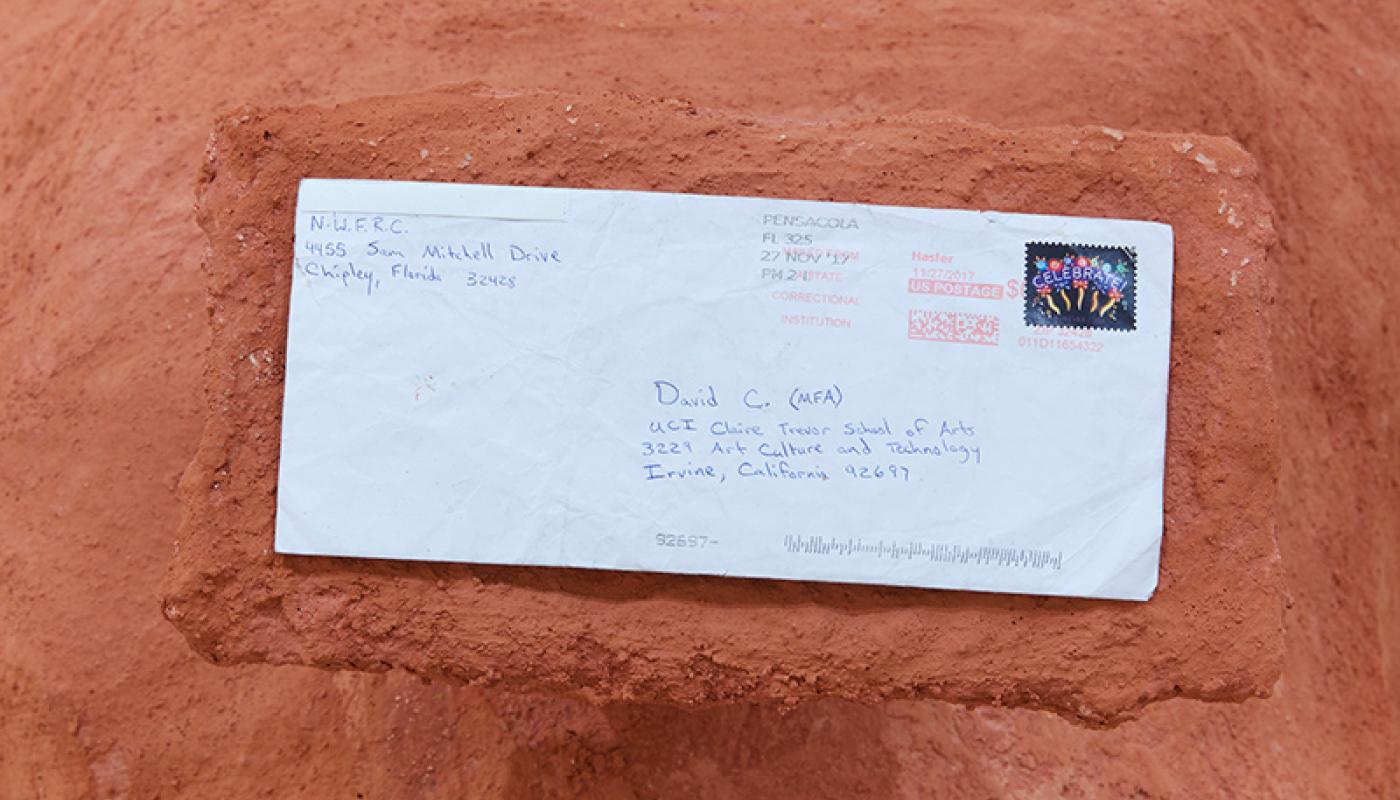 N.W.F.R.C.
4455 Sam Mitchell Drive
Chipley, Florida 32428
PENSACOLA
FL 325
27 NOV '17
PM 2 L
MAILED FROM
STATE
CORRECTIONAL
INSTITUTION
Hasler
11/27/2017
US POSTAGE $
CELEBRATE!
ZIP 32428
011D11654322
David C. (MFA)
UCI Claire Trevor School of Arts
3229 Art Culture and Technology
Irvine, California 92697
92697-